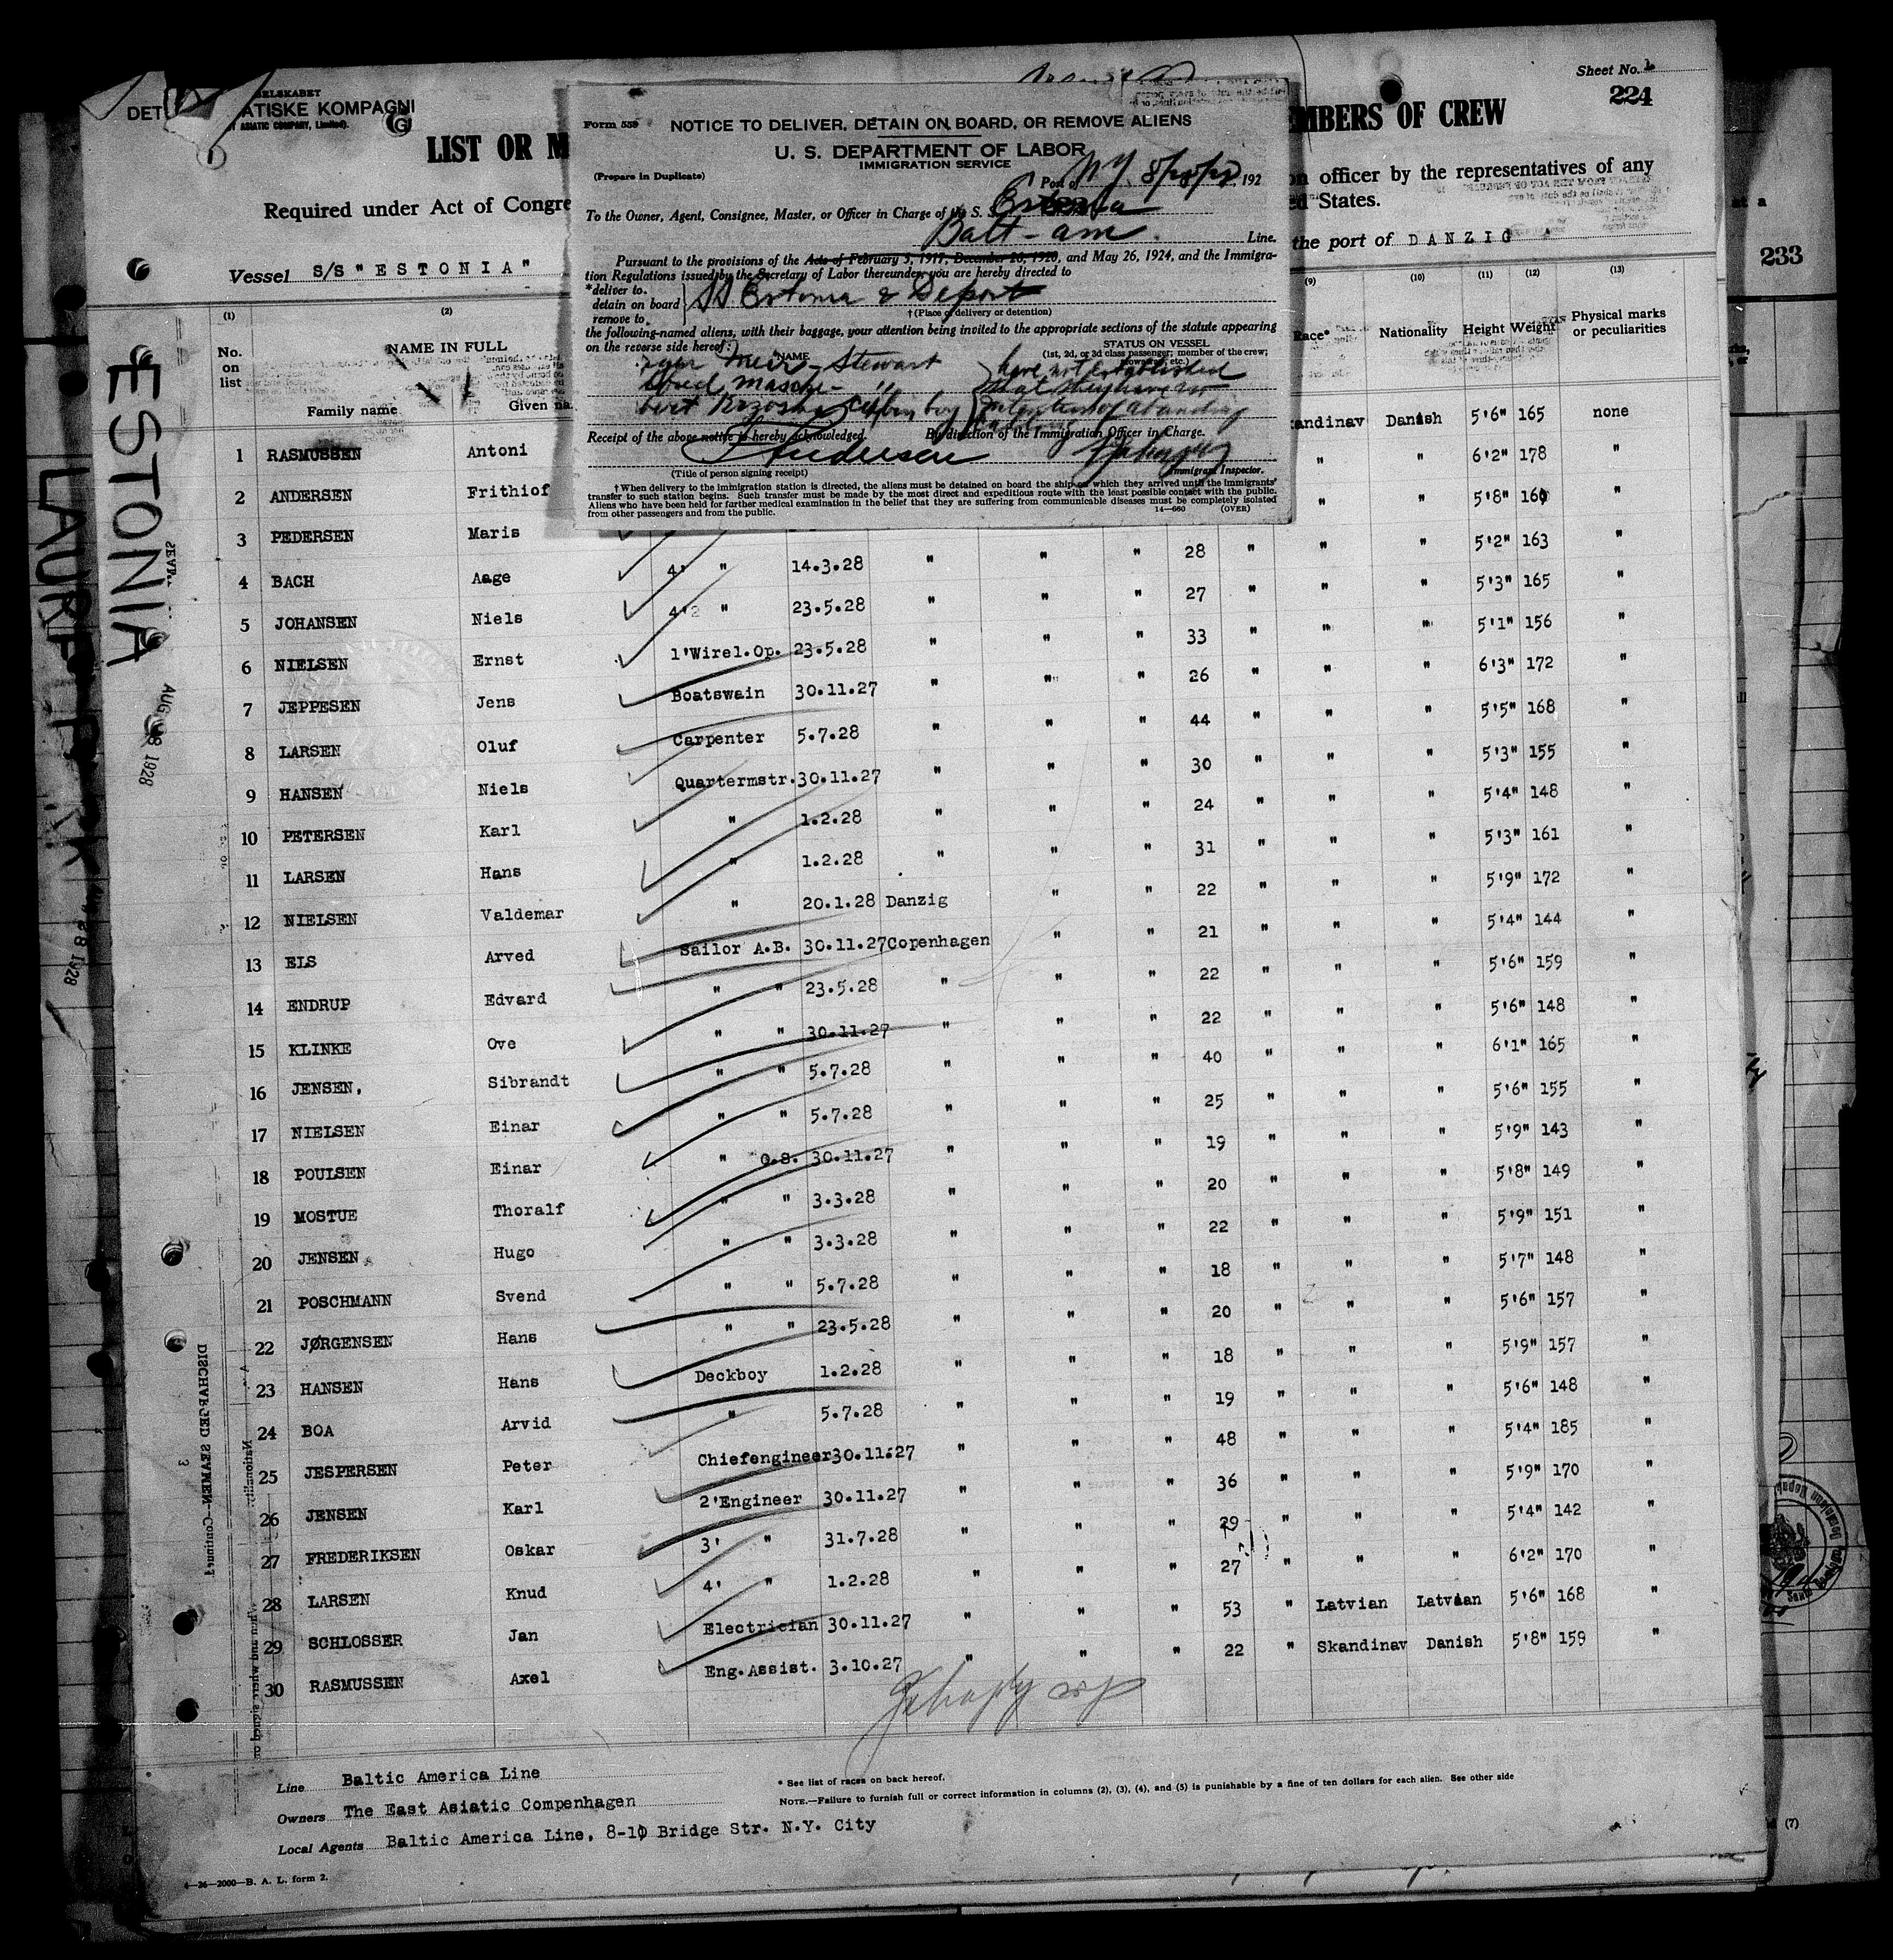 Sheet No.
224
DET
ATISKE KOMPAGNI
T ASIATIC COMPANY, Limited).
LIST OR M
EMBERS OF CREW
Required under Act of Congre
on officer by the representatives of any
ed States.
the port of DANZIG
Vessel S/S "ESTONIA"
233
Form 539
NOTICE TO DELIVER, DETAIN ON BOARD, OR REMOVE ALIENS
U. S. DEPARTMENT OF LABOR
IMMIGRATION SERVICE
(Prepare in Duplicate)
Port of NY, 192
To the Owner, Agent, Consignee, Master, or Officer in Charge of the S. S. Estonia
Balt-am Line.
Pursuant to the provisions of the Acts of February 5, 1917, December 26, 1920, and May 26, 1924, and the Immigra-
tion Regulations issued by the Secretary of Labor thereunder, you are hereby directed to
*deliver to
detain on board
remove to
SS Estonia & Deport
†(Place of delivery or detention)
the following-named aliens, with their baggage, your attention being invited to the appropriate sections of the statute appearing
on the reverse side hereof:
NAME
STATUS ON VESSEL
(1st, 2d, or 3d class passenger; member of the crew;
stowaway, etc.)
Meir - Stewart
have not established
that they have no
intention of abandoning
Receipt of the above notice is hereby acknowledged.
By direction of the Immigration Officer in Charge.
Andersen
(Title of person signing receipt)
Immigrant Inspector.
†When delivery to the immigration station is directed, the aliens must be detained on board the ship on which they arrived until the immigrants'
transfer to such station begins. Such transfer must be made by the most direct and expeditious route with the least possible contact with the public.
Aliens who have been held for further medical examination in the belief that they are suffering from communicable diseases must be completely isolated
from other passengers and from the public.
14—660 (OVER)
(1) (2) (9) (10) (11) (12) (13)
No. on list
NAME IN FULL
Family name Given na
Race* Nationality Height Weight Physical marks or peculiarities
ESTONIA
AUG 28 1928
1 RASMUSSEN Antoni Skandinav Danish 5'6" 165 none
2 ANDERSEN Frithiof " " 6'2" 178 "
3 PEDERSEN Maris " " 5'8" 160 "
4 BACH Aage 4' " 14.3.28 " " " 28 " " " 5'2" 163 "
5 JOHANSEN Niels 4'2 " 23.5.28 " " " 27 " " " 5'3" 165 "
6 NIELSEN Ernst 1'Wirel.Op. 23.5.28 " " " 33 " " " 5'1" 156 "
7 JEPPESEN Jens Boatswain 30.11.27 " " " 26 " " " 6'3" 172 "
8 LARSEN Oluf Carpenter 5.7.28 " " " 44 " " " 5'5" 168 "
9 HANSEN Niels Quartermstr. 30.11.27 " " " 30 " " " 5'3" 155 "
10 PETERSEN Karl " 1.2.28 " " " 24 " " " 5'4" 148 "
11 LARSEN Hans " 1.2.28 " " " 31 " " " 5'3" 161 "
12 NIELSEN Valdemar " 20.1.28 Danzig " " 22 " " " 5'9" 172 "
13 ELS Arved Sailor A.B. 30.11.27 Copenhagen " " 21 " " " 5'4" 144 "
14 ENDRUP Edvard " " 23.5.28 " " " 22 " " " 5'6" 159 "
15 KLINKE Ove " " 30.11.27 " " " 22 " " " 5'6" 148 "
16 JENSEN, Sibrandt " " 5.7.28 " " " 40 " " " 6'1" 165 "
17 NIELSEN Einar " " 5.7.28 " " " 25 " " " 5'6" 155 "
18 POULSEN Einar " O.S. 30.11.27 " " " 19 " " " 5'9" 143 "
19 MOSTUE Thoralf " " 3.3.28 " " " 20 " " " 5'8" 149 "
20 JENSEN Hugo " " 3.3.28 " " " 22 " " " 5'9" 151 "
21 POSCHMANN Svend " " 5.7.28 " " " 18 " " " 5'7" 148 "
22 JØRGENSEN Hans " " 23.5.28 " " " 20 " " " 5'6" 157 "
23 HANSEN Hans Deckboy 1.2.28 " " " 18 " " " 5'9" 157 "
24 BOA Arvid " 5.7.28 " " " 19 " " " 5'6" 148 "
25 JESPERSEN Peter Chiefengineer 30.11.27 " " " 48 " " " 5'4" 185 "
26 JENSEN Karl 2'Engineer 30.11.27 " " " 36 " " " 5'9" 170 "
27 FREDERIKSEN Oskar 3' " 31.7.28 " " " 29 " " " 5'4" 142 "
28 LARSEN Knud 4' " 1.2.28 " " " 27 " " " 6'2" 170 "
29 SCHLOSSER Jan Electrician 30.11.27 " " " 53 " Latvian Latvian 5'6" 168 "
30 RASMUSSEN Axel Eng.Assist. 3.10.27 " " " 22 " Skandinav Danish 5'8" 159 "
Line Baltic America Line
Owners The East Asiatic Compenhagen
Local Agents Baltic America Line, 8-10 Bridge Str. N.Y. City
* See list of races on back hereof.
NOTE.—Failure to furnish full or correct information in columns (2), (3), (4), and (5) is punishable by a fine of ten dollars for each alien. See other side
4—26—2000—B. A. L. form 2.
DISCHARGED SEAMEN—Continued
3
(7)